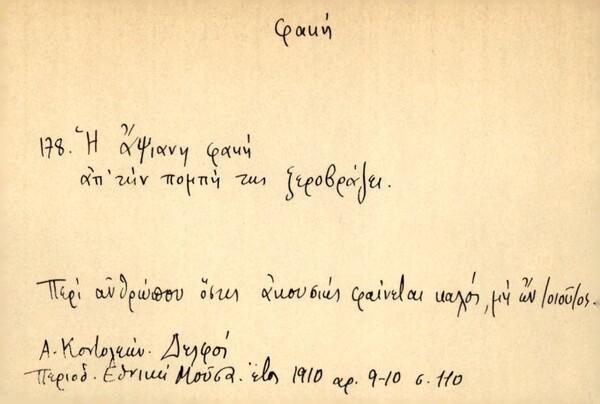 φακή
178. Ἡ ἄψιανη φακή
ἀπ' τὴν πομπή της ξεροβράζει.
Περὶ ἀνθρώπου ὅστις ἀκουσίως φαίνεται καλός, μὴ ὢν τοιοῦτος.
Α. Κοντολέων. Δελφοί
Περιοδ. Ἐθνική Μοῦσα. ἔτος 1910 αρ. 9-10 σ. 110